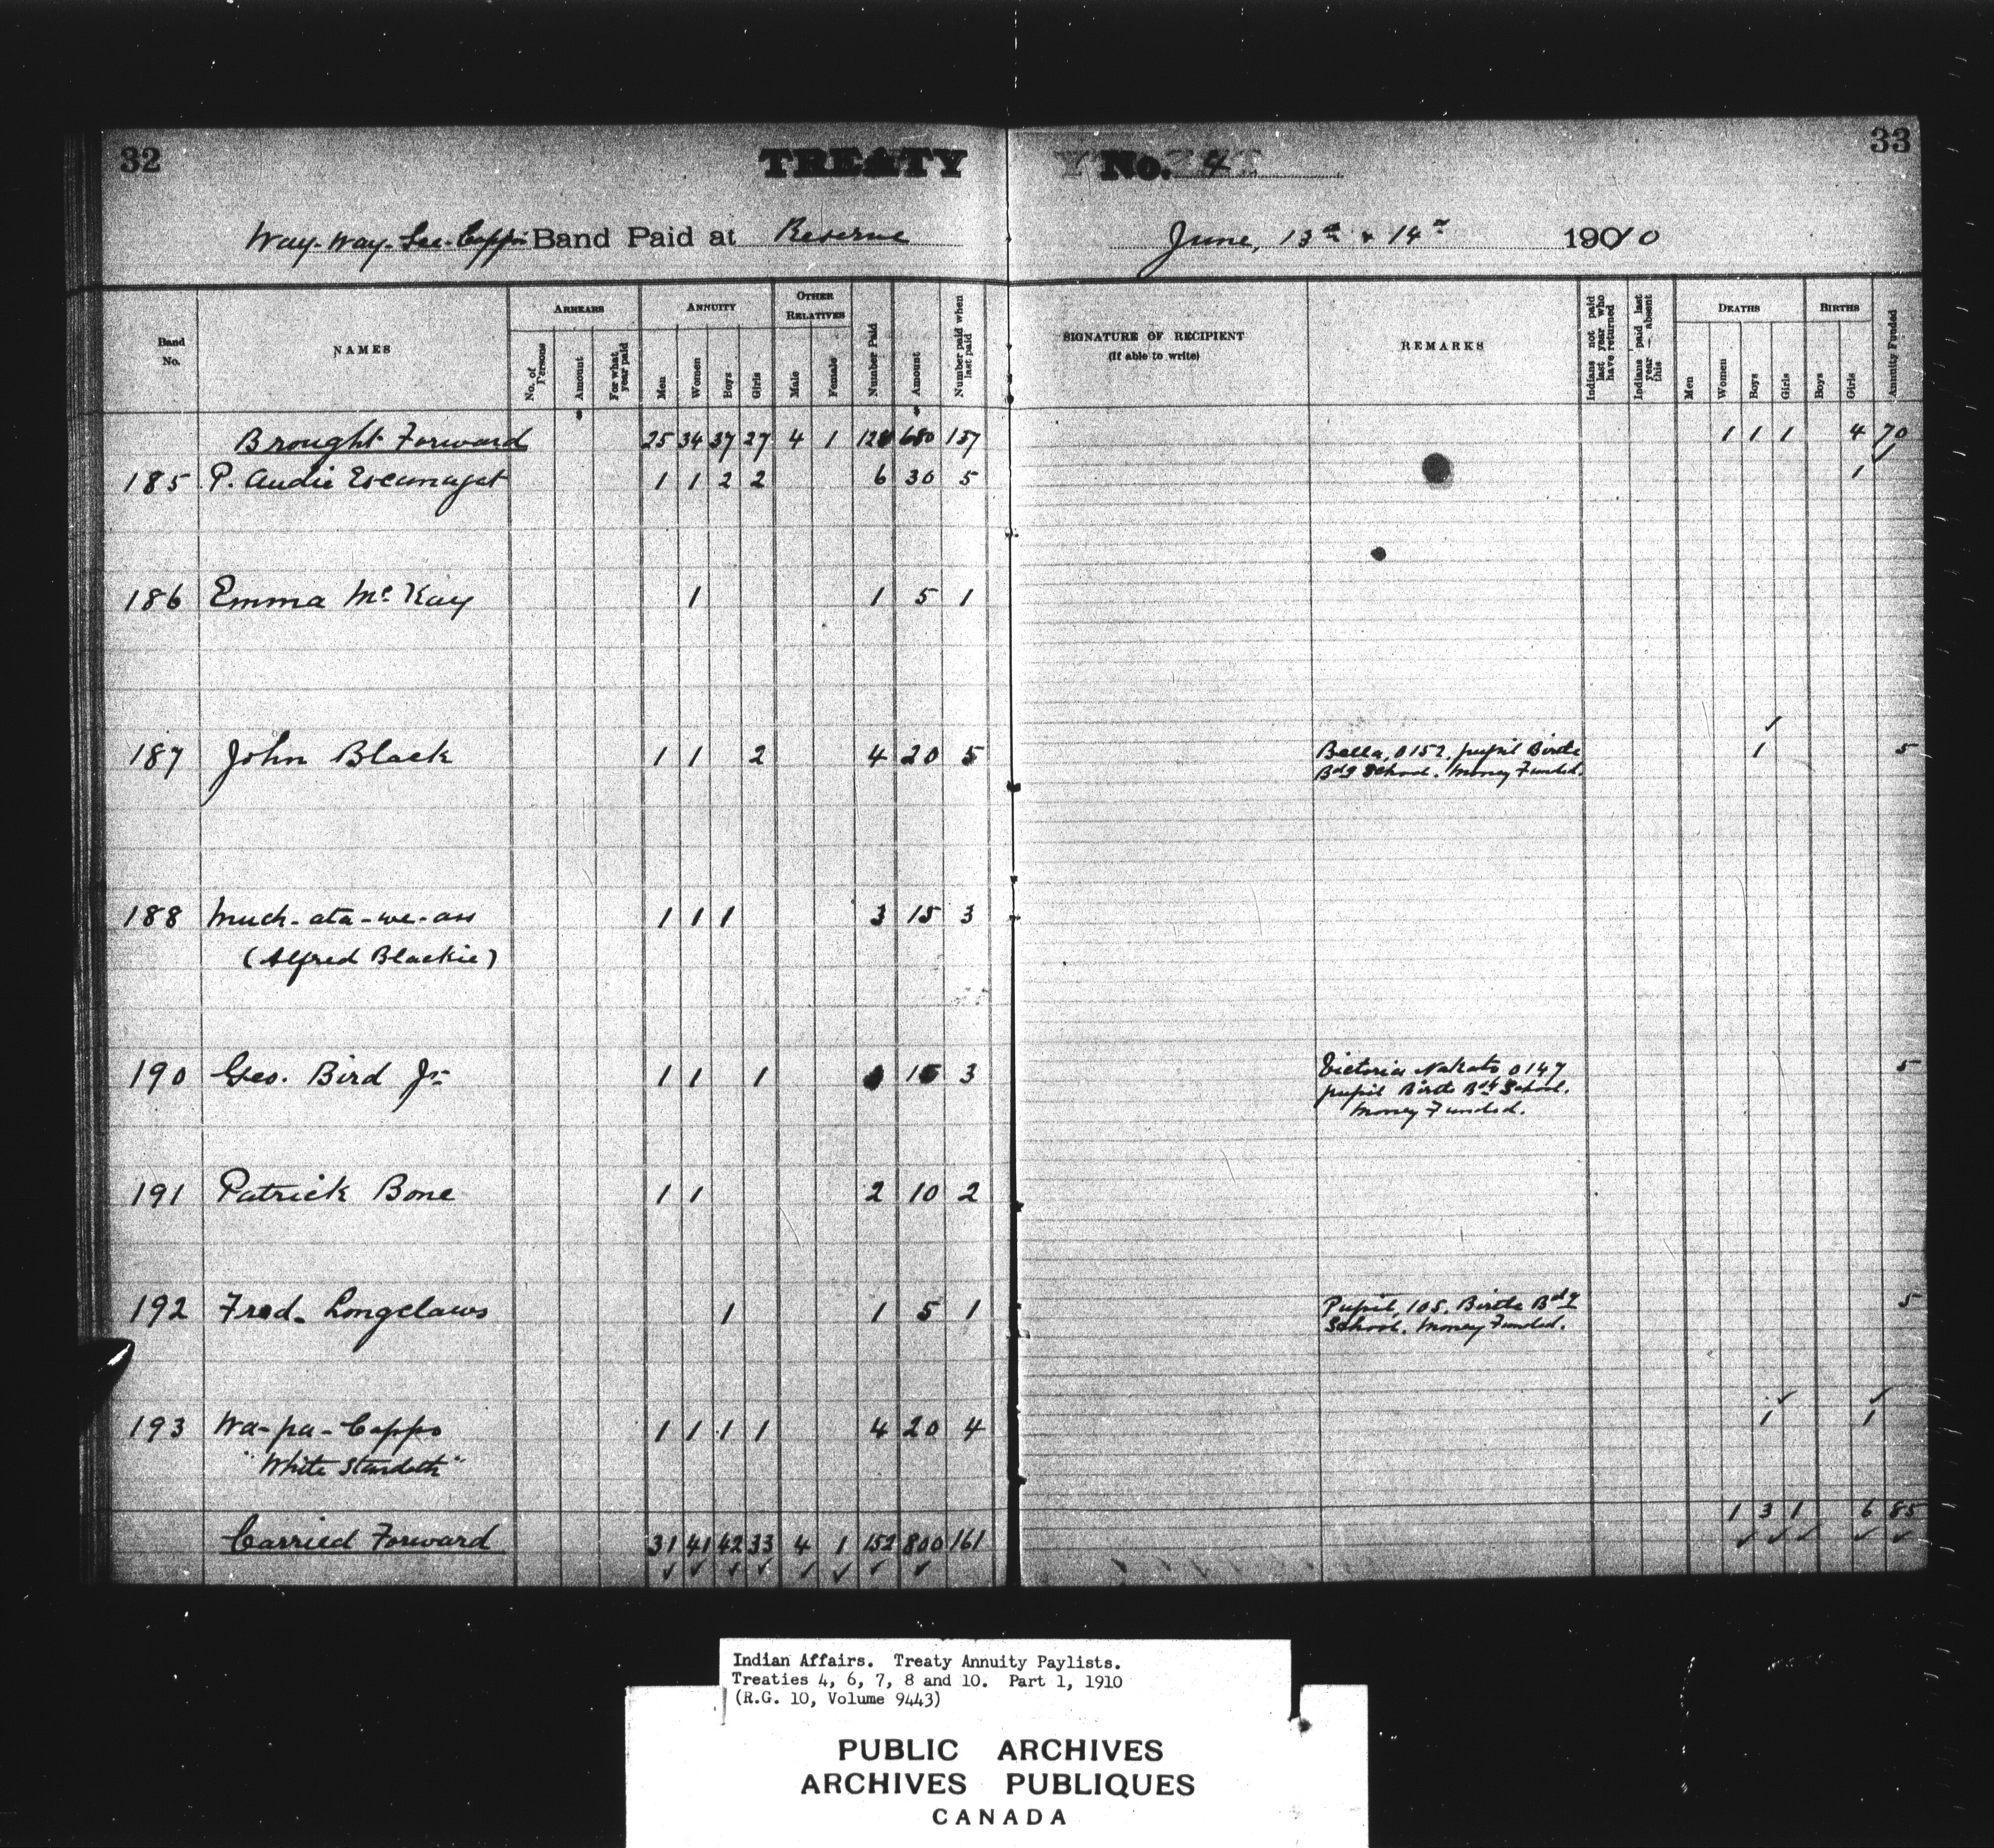 32
33
TREATY No. 4
Way-Way-See-Cappo Band Paid at Reserve June, 13th & 14th 1910
Band No.
NAMES
ARREARS
No. of Persons
Amount
For what year paid
ANNUITY
Men
Women
Boys
Girls
OTHER RELATIVES
Male
Female
Number Paid
Amount
Number paid when last paid
SIGNATURE OF RECIPIENT
(If able to write)
REMARKS
Indians not paid last year who have returned
Indians paid last year — absent this
DEATHS
Men
Women
Boys
Girls
BIRTHS
Boys
Girls
Annuity Funded
Brought Forward 25 34 37 27 4 1 128 680 157 1 1 1 4 70
185 P. Audie 1 1 2 2 6 30 5 1
186 Emma McKay 1 1 5 1
187 John Black 1 1 2 4 20 5 Bella, 0152, pupil Birtle 1 5
Bdg School. Money Funded.
188 Much-ata-we-ass 1 1 1 3 15 3
(Alfred Blackie)
190 Geo. Bird Jr 1 1 1 15 3 Victoria Nakato 0147 5
pupil Birtle Bdg School.
Money Funded.
191 Patrick Bone 1 1 2 10 2
192 Fred. Longclaws 1 1 5 1 Pupil, 105, Birtle Bdg 5
School. Money Funded.
193 Wa-pa-Cappo 1 1 1 1 4 20 4 1 1
"White
1 3 1 6 85
Carried Forward 31 41 42 33 4 1 152 800 161
Indian Affairs. Treaty Annuity Paylists.
Treaties 4, 6, 7, 8 and 10. Part 1, 1910
(R.G. 10, Volume 9443)
PUBLIC ARCHIVES
ARCHIVES PUBLIQUES
CANADA